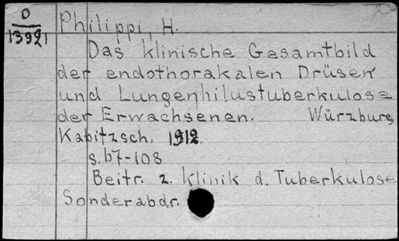 O
13921
Philippi, H.
Das klinische Gesamtbild
der endothorakalen Drüsen
und Lungenhilustuberkulose
der Erwachsenen. Würzburg
Kabitzsch. 1912.
s. 67-108
Beitr. z. Klinik d. Tuberkulose
Sonderabdr.